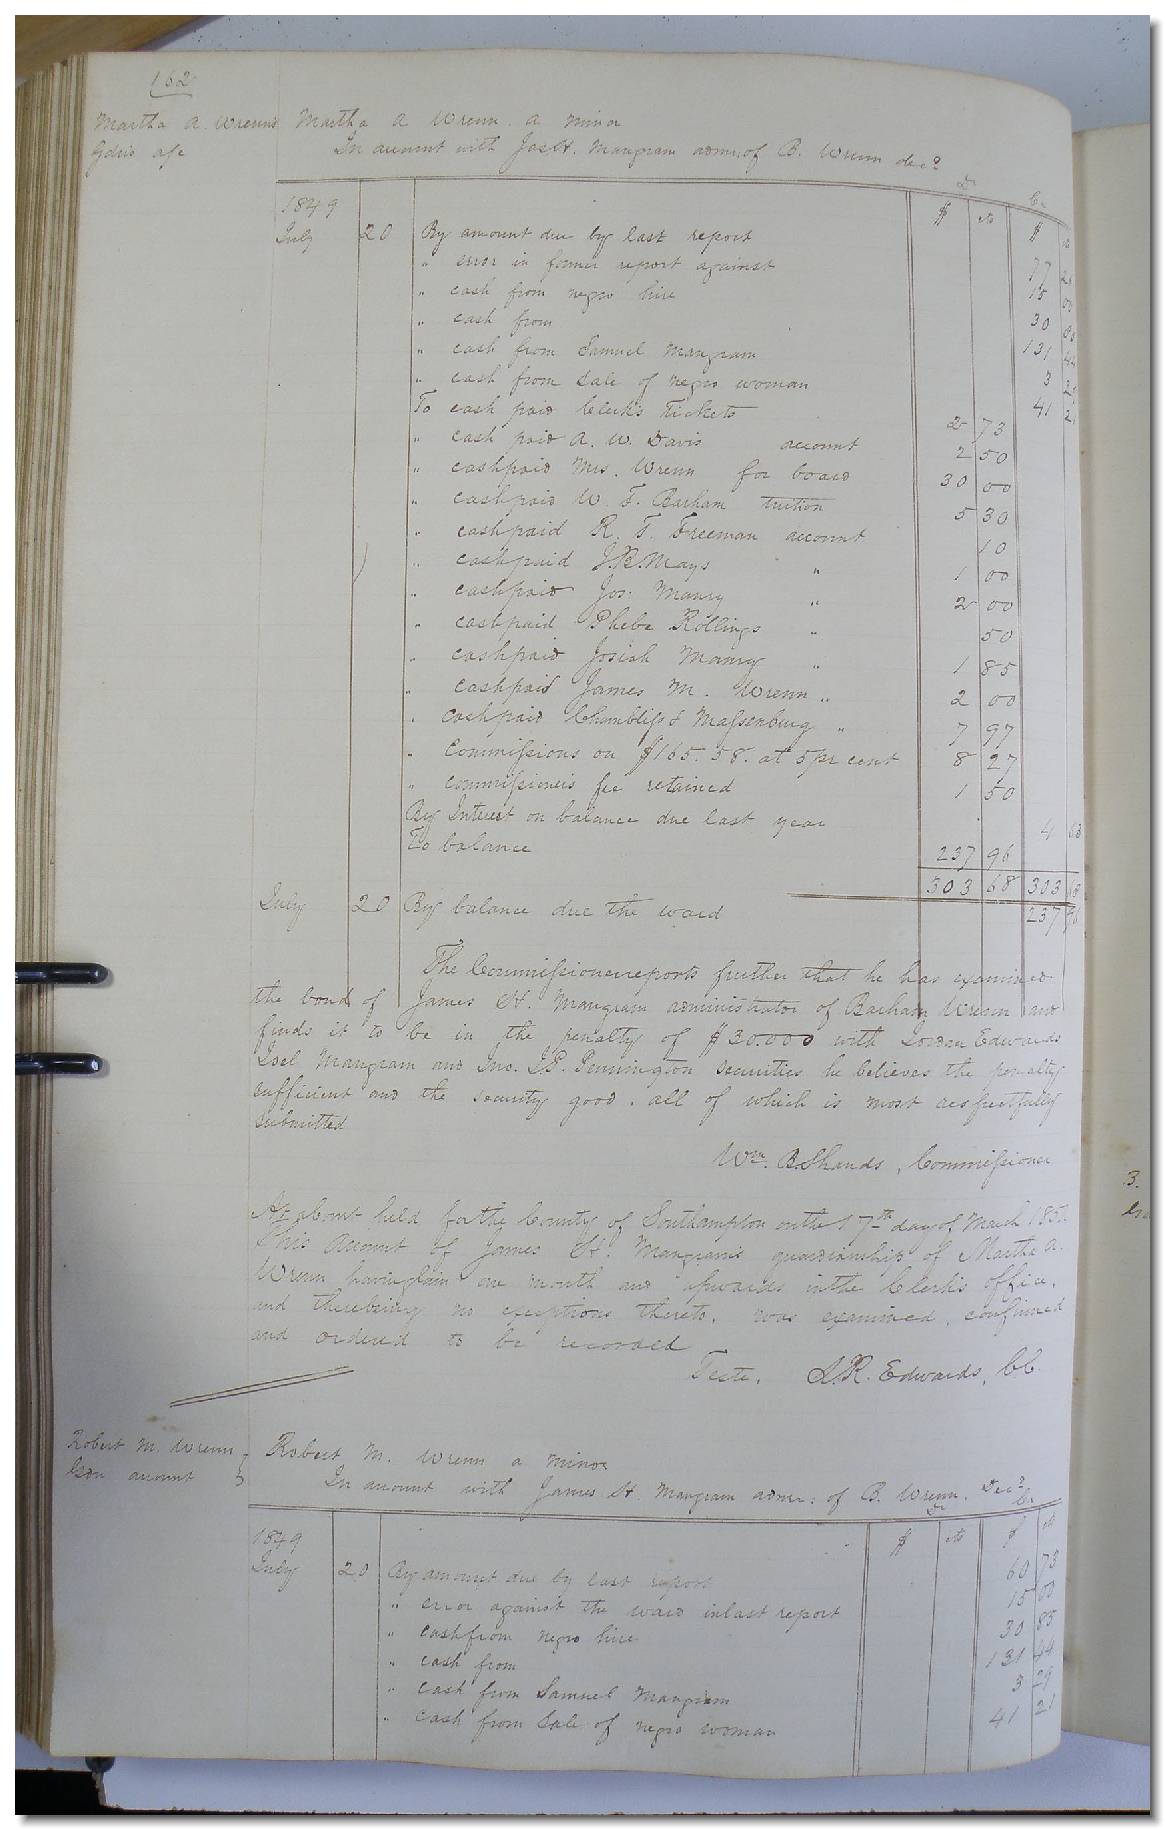 162
Martha A. Wrenn's Martha A Wrenn a minor
Gdns a/c In account with Jas H. Mangram admr. of B. Wrenn decd
Dr Cr
1849 $ cts $
July 20 By amount due by last report 77
" error in former report against 15 00
" cash from negro hire 30
" cash from 131 44
" cash from Samuel Mangram 3
" cash from sale of negro woman 41
To cash paid Clerk's Tickets 2 73
" cash paid A. W. Davis account 2 50
" cashpaid Mrs. Wrenn for board 30 00
" cashpaid W. F. Barham tuition 5 30
" cashpaid R. T. Freeman account 10
" cashpaid J.R. Mays " 1 00
" cashpaid Jos. Manry " 2 00
" cashpaid Phebe Rollings " 50
" cashpaid Josiah Manry " 1 85
" cashpaid James M. Wrenn " 2 00
" cashpaid Chambliss & Massenburg " 7 97
" Commissions on $165.58. at 5 pr cent 8 27
" commissioner's fee retained 1 50
By Interest on balance due last year 4
To balance 237 96
303 68 303 68
July 20 By balance due the ward 237 96
The Commissioner reports further that he has examined
the bond of James H. Mangram administrator of Barham Wrenn and
finds it to be in the penalty of $30.000 with Edwards
Joel Mangram and Jno. Pennington securities he believes the penalty
sufficient and the security good. all of which is most respectfully
submitted
Wm. B. Shands, Commissioner
At a Court held for the County of Southampton on the 17th day of March 185
This Account of James H. Mangram's guardianship of Martha A.
Wrenn having lain one month and upwards in the Clerk's office,
and there being no exceptions thereto, was examined, confirmed
and ordered to be recorded
Teste. L.R. Edwards, CC.
Robert M. Wrenn Robert M. Wrenn a minor
Gdn account In account with James H. Mangram admr. of B. Wrenn. Decd
Dr Cr
1849 $ cts $ cts
July 20 By amount due by last report 60 73
" error against the ward in last report 15 00
" cash from negro hire 30 85
" cash from 131 44
" cash from Samuel Mangram 3 29
" cash from sale of negro woman 41 21
B.